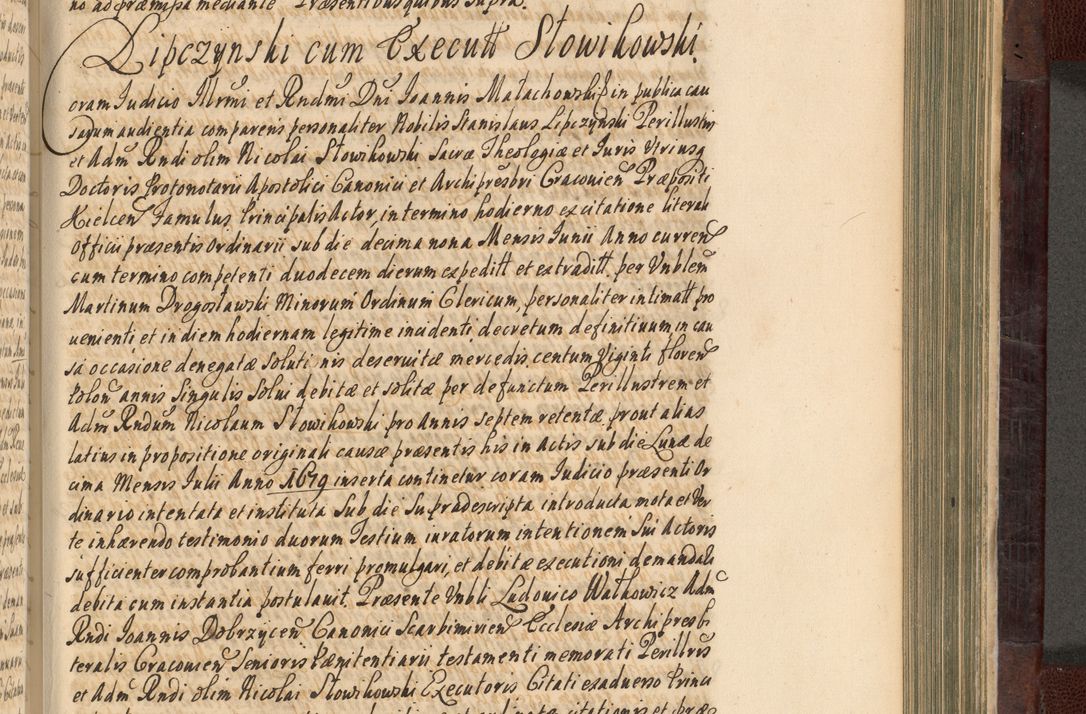 no ad præmissa mediante Præsentibus quibus supra.
Lipczynski cum Executt Słowikowski.
Coram Judicio Illrmi et Rndmi Dni Joannis Małachowski in publica cau
sarum audientia comparens personaliter Nobilis Stanislaus Lipczynski Perillustris
et Adm Rndi olim Nicolai Słowikowski Sacræ Theologiæ et Juris Vtriusq
Doctoris Protonotarii Apostolici Canonici et Archipresbri Cracovien Præpositi
Kielcen Famulus Principalis Actor, in termino hodierno ex citatione literali
Officii præsentis Ordinarii sub die decima nona Mensis Junii Anno curren
cum termino competenti duodecem dierum expeditt et extraditt per Vnblem
Martinum Drogosławski Minorum Ordinum Clericum, personaliter intimatt pro
uenienti et in diem hodiernam legitime incidenti decretum definitiuum in cau
sa occasione denegatæ soluti nis deseruitæ mercedis centum Viginti floren
Polon annis singulis solui debitæ et solitæ per defunctum Perillustrem et
Adm Rndum Nicolaum Słowikowski pro annis septem retentæ prout alias
latius in propositione originali causæ præsentis his in Actis sub die Lunæ de
cima Mensis Julii Anno 1679 inserta continetur coram Judicio præsenti Or
dinario intentata et instituta sub die supradescripta introducta mota et Ver
te inhærendo testimonio duorum Testium iuratorum intentionem sui Actoris
sufficienter comprobantium ferri promulgari, et debitæ executioni demandari
debita cum instantia postulauit. Præsente Vnbli Ludouico Wałkowicz Adm
Rndi Joannis Dobrzycen Canonici Scarbimirien Ecclesiæ Archipresb
teralis Cracouien Senioris Pænitentiarii testamenti memorati Perillris
et Adm Rndi olim Nicolai Słowikowski Executoris Citati ex aduerso Princi